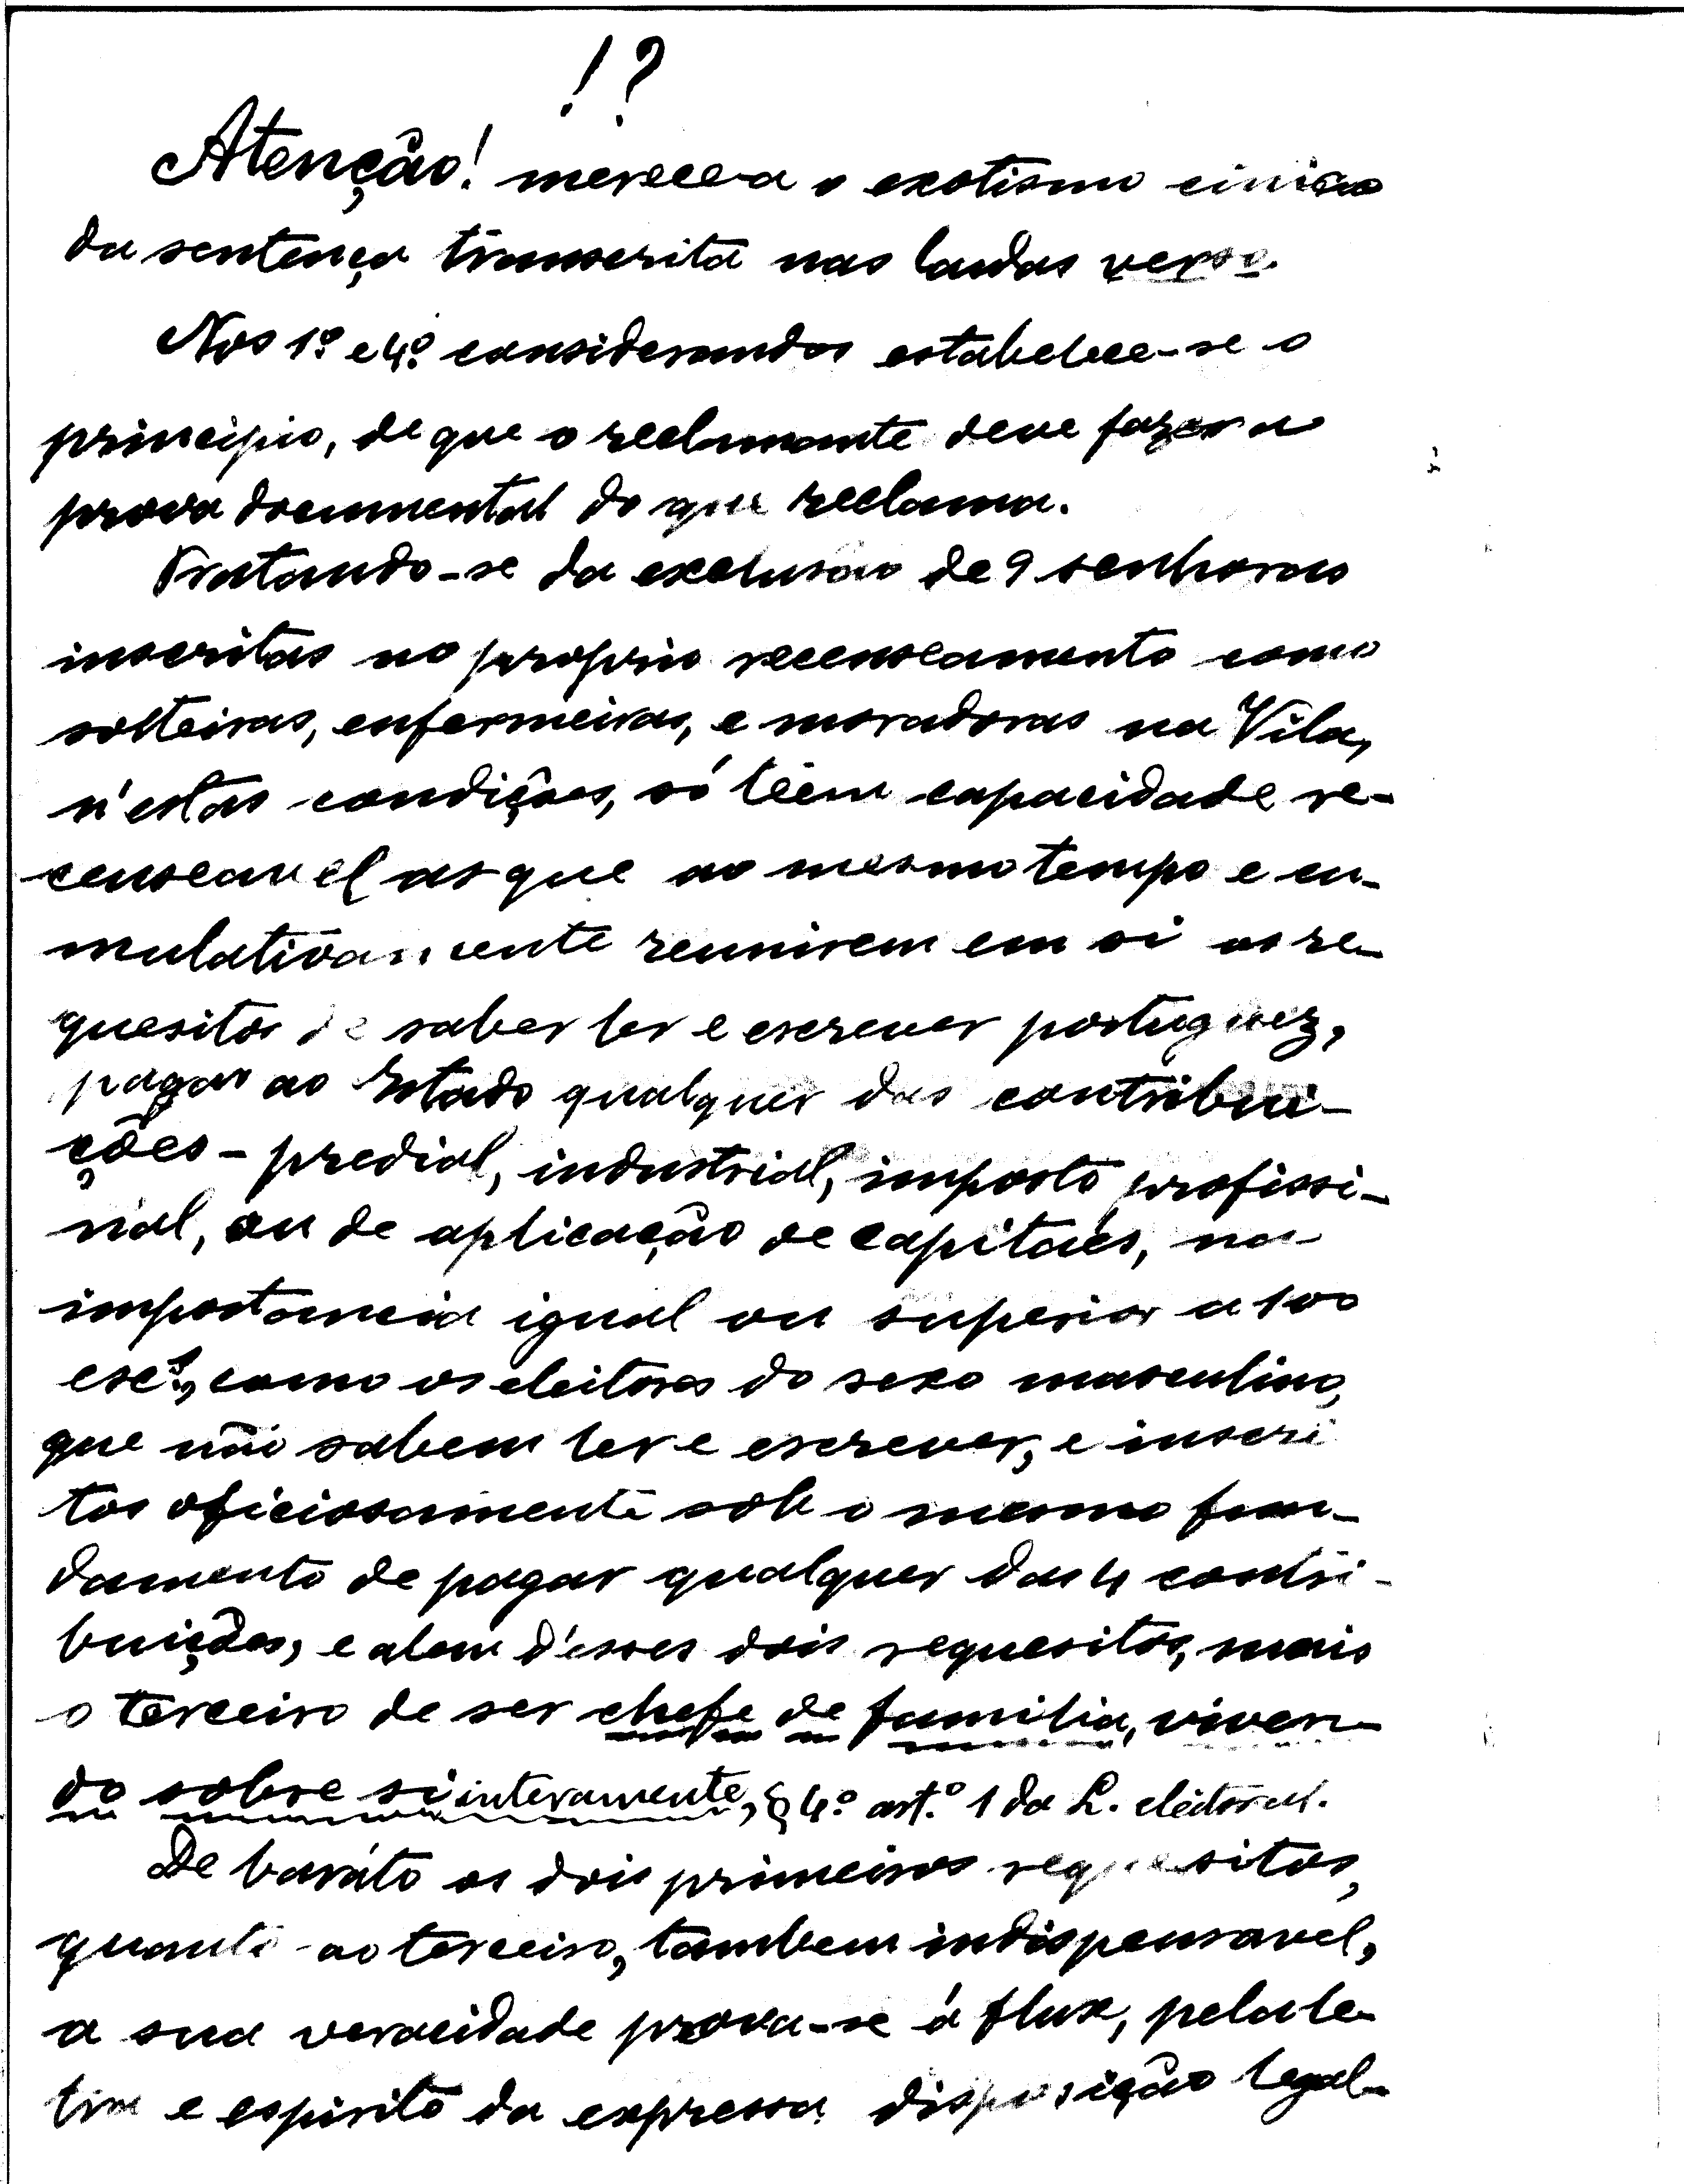 !?
Atenção! merece-a o exotismo cinico
da sentença transcrita nas laudas verso.
Nos 1º e 4º considerandos estabelece-se o
principio, de que o reclamante deve fazer a
prova documental do que reclama.
Tratando-se da exclusão de 9 senhoras
inscritas no proprio recenseamento como
solteiras, enfermeiras, e moradoras na Vila,
n'estas condições, só téem capacidade re-
censeavel as que ao mesmo tempo e cu-
mulativamente reunirem em si os re-
quesitos de saber ler e escrever portuguez,
pagar ao Estado qualquer das contribui-
ções - predial, industrial, imposto profissi-
nal, ou de aplicação de capitaes, na
importancia igual ou superior a 100
escs., como os eleitores do sexo masculino,
que não sabem ler e escrever, e inscri
tos oficiosamente sob o mesmo fun-
damento de pagar qualquer das 4 contri-
buições, e alem d'esses dois requesitos, mais
o terceiro de ser chefe de familia, viven-
do sobre si inteiramente, § 4º art.º 1 da L. eleitoral.
De baráto os dois primeiros requesitos,
quanto ao terceiro, tambem indispensavel,
a sua veracidade prova-se á flux, pela le-
tra e espirito da expressa disposição legal-